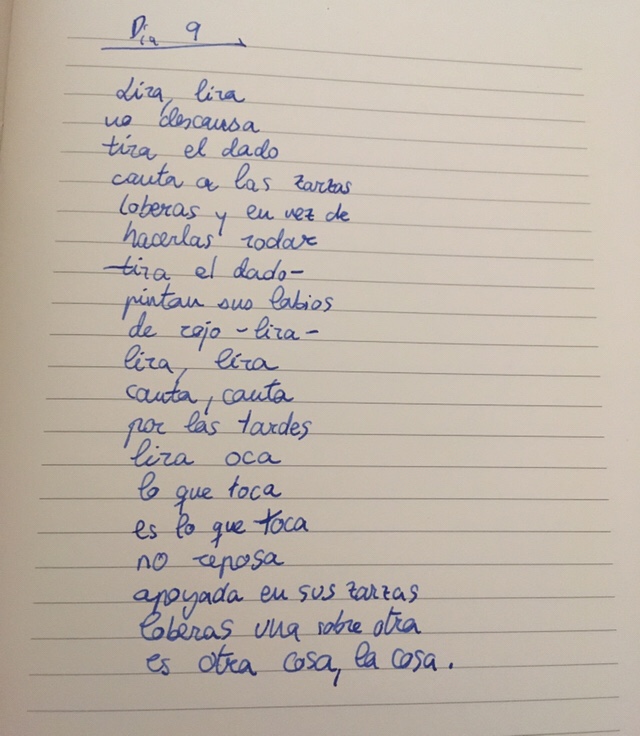 Día 9
Lira, lira
no descansa
tira el dado
canta a las zarzas
loberas y en vez de
hacerlas rodar
-tira el dado-
pintan sus labios
de rojo - lira -
lira, lira
canta, canta
por las tardes
lira oca
lo que toca
es lo que toca
no reposa
apoyada en sus zarzas
loberas una sobre otra
es otra cosa, la cosa.